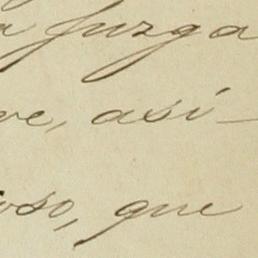 a juzga
ve, así-
oso, que